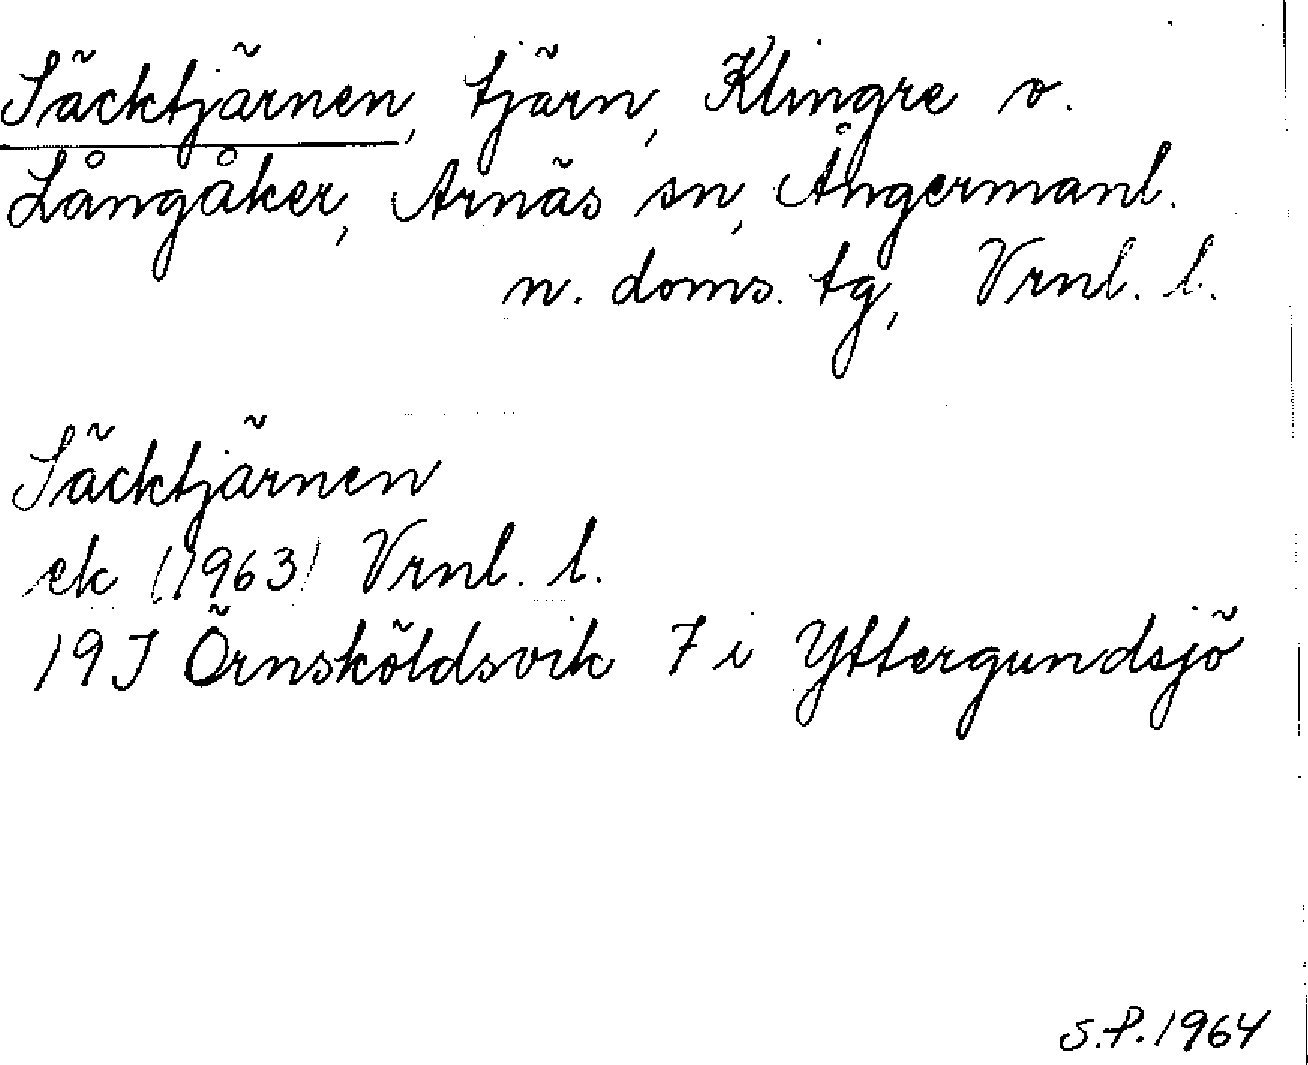 Säcktjärnen, tjärn, Klingre o.
Långåker, Arnäs sn, Ångermanl.
n. doms. tg, Vrnl. l.
Säcktjärnen
ek (1963) Vrnl. l.
19J Örnsköldsvik 7 i Yttergundsjö
S.P. 1964